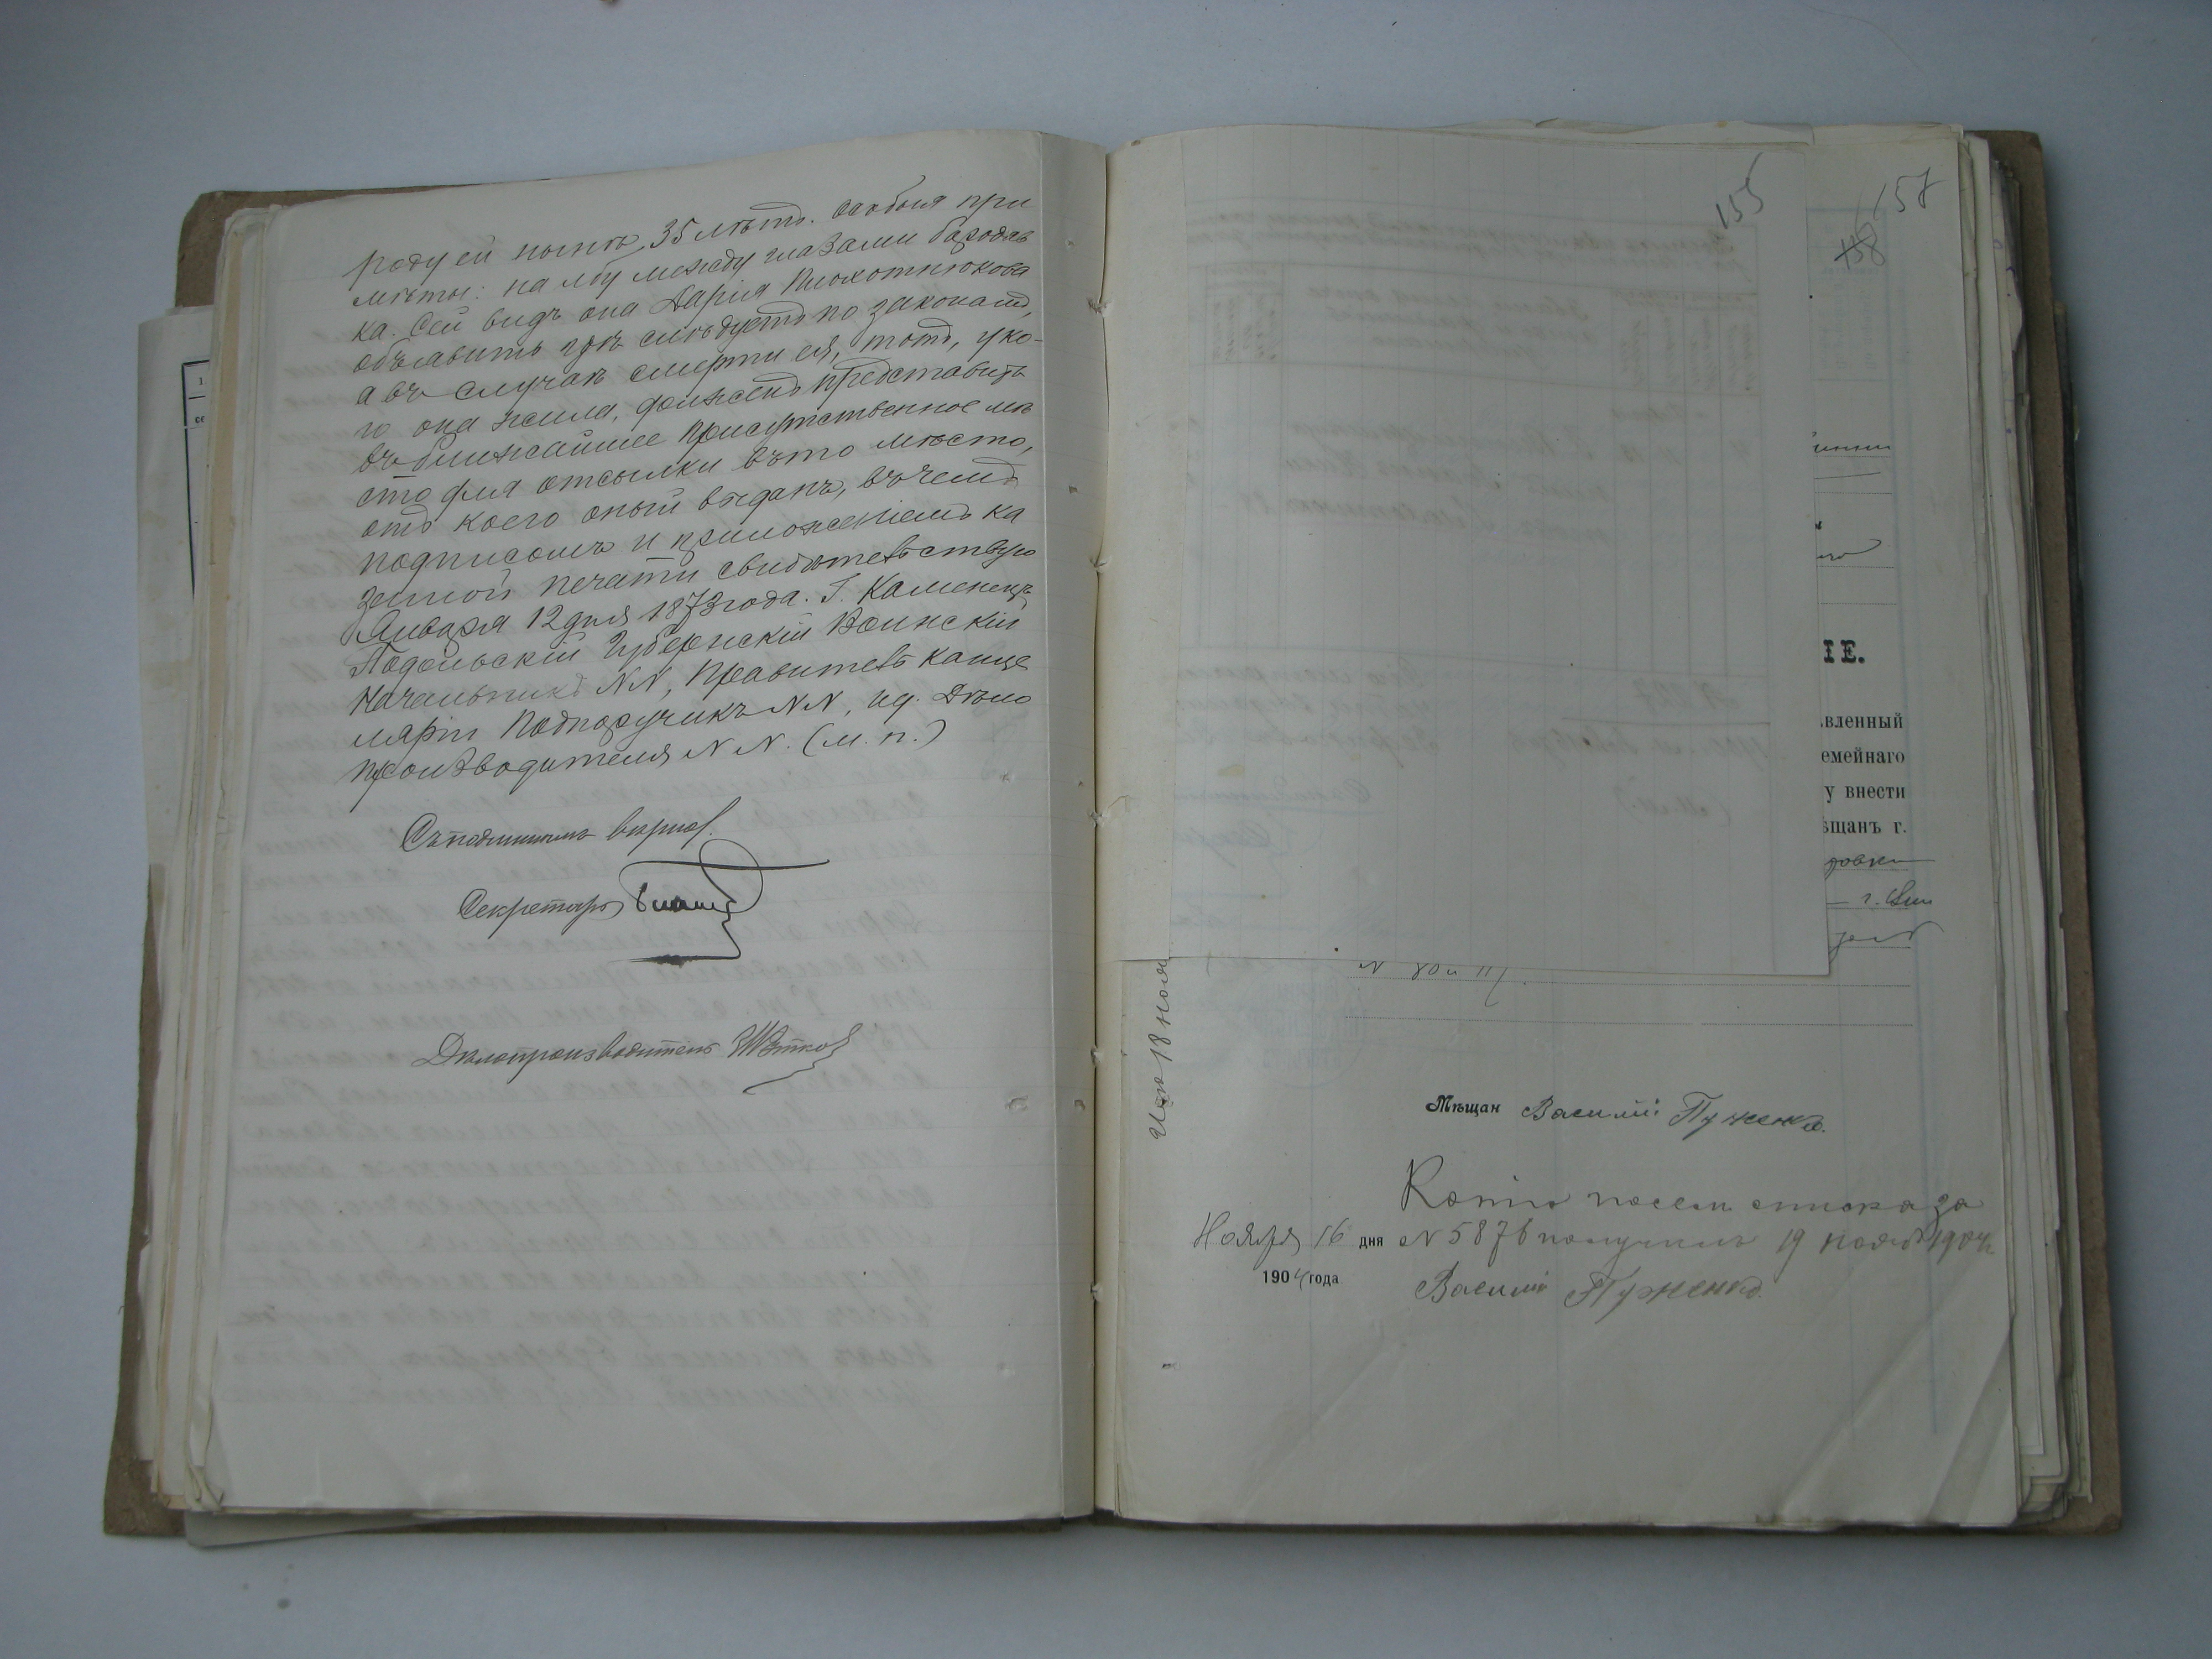 роду ей нынѣ 35 лѣтъ. Особыя при
мѣты: на лбу между глазами бародав
ка. Сей видъ она Дарія Плохотнюкова
объявить гдѣ слѣдуетъ по законамъ,
а въ случаѣ смерти ея, тотъ, у ко-
го она жила, долженъ представить
въ ближайшее присутственное мѣ
сто для отсылки въ то мѣсто,
отъ коего оный выданъ, въ чемъ
подписомъ и приложеніемъ ка
зенной печати свидѣтельствую
Января 12 дня 1873 года. Г. Каменецъ
Подольскій Губернскій Воинскій
Начальникъ NN, Правитель Канце
ляріи Подпоручикъ NN, ид. Дѣло
производителя NN. (М. п.)
Съ подлиннымъ вѣрно.
Секретарь
Дѣлопроизводитель
155
157
158
IE.
вленный
емейнаго
у внести
ѣщанъ г.
г. Вин
18 ноя
Мѣщан Василій Пуженко.
Копію посем. списка за
Ноября 16 дня № 5876 получилъ 19 ноября 1904
1904 года
Василій Пуженко.